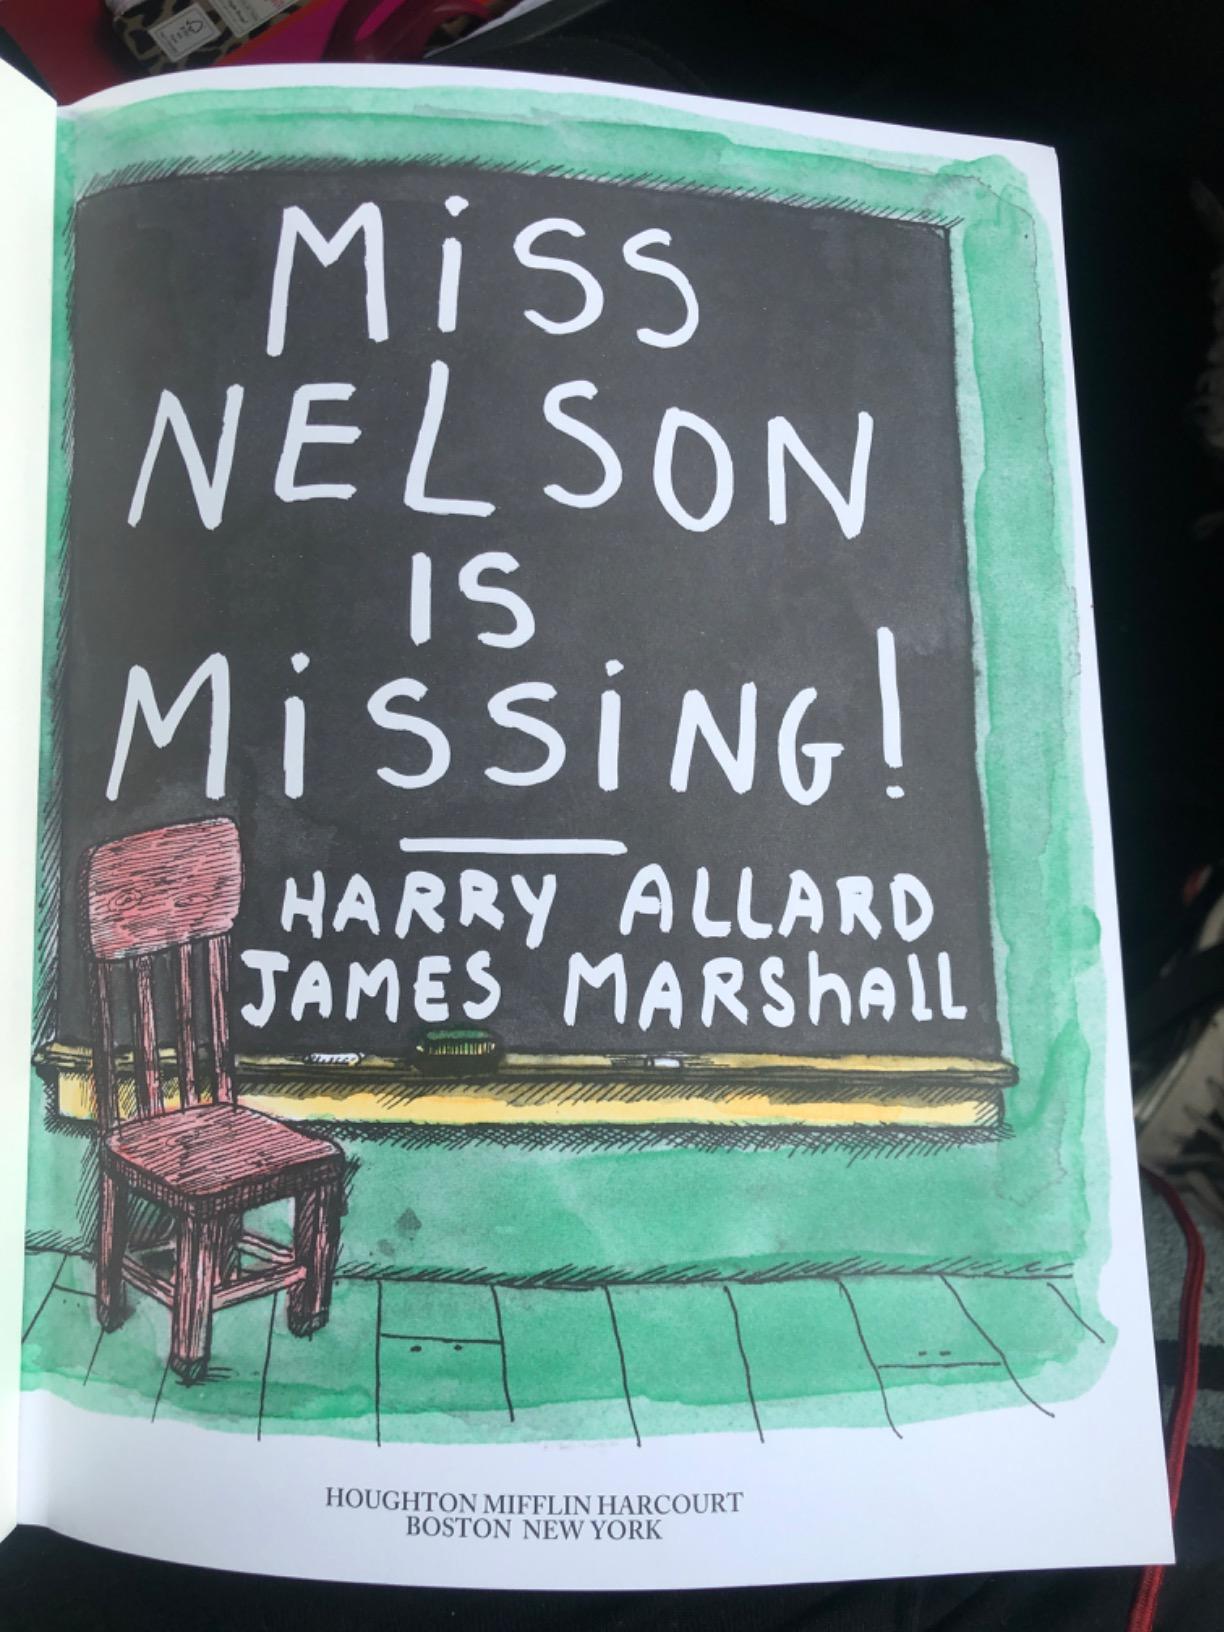 MiSS
NELSON
IS
MiSSiNG!
HARRY ALLARD
JAMES MARShALL
HOUGHTON MIFFLIN HARCOURT
BOSTON NEW YORK